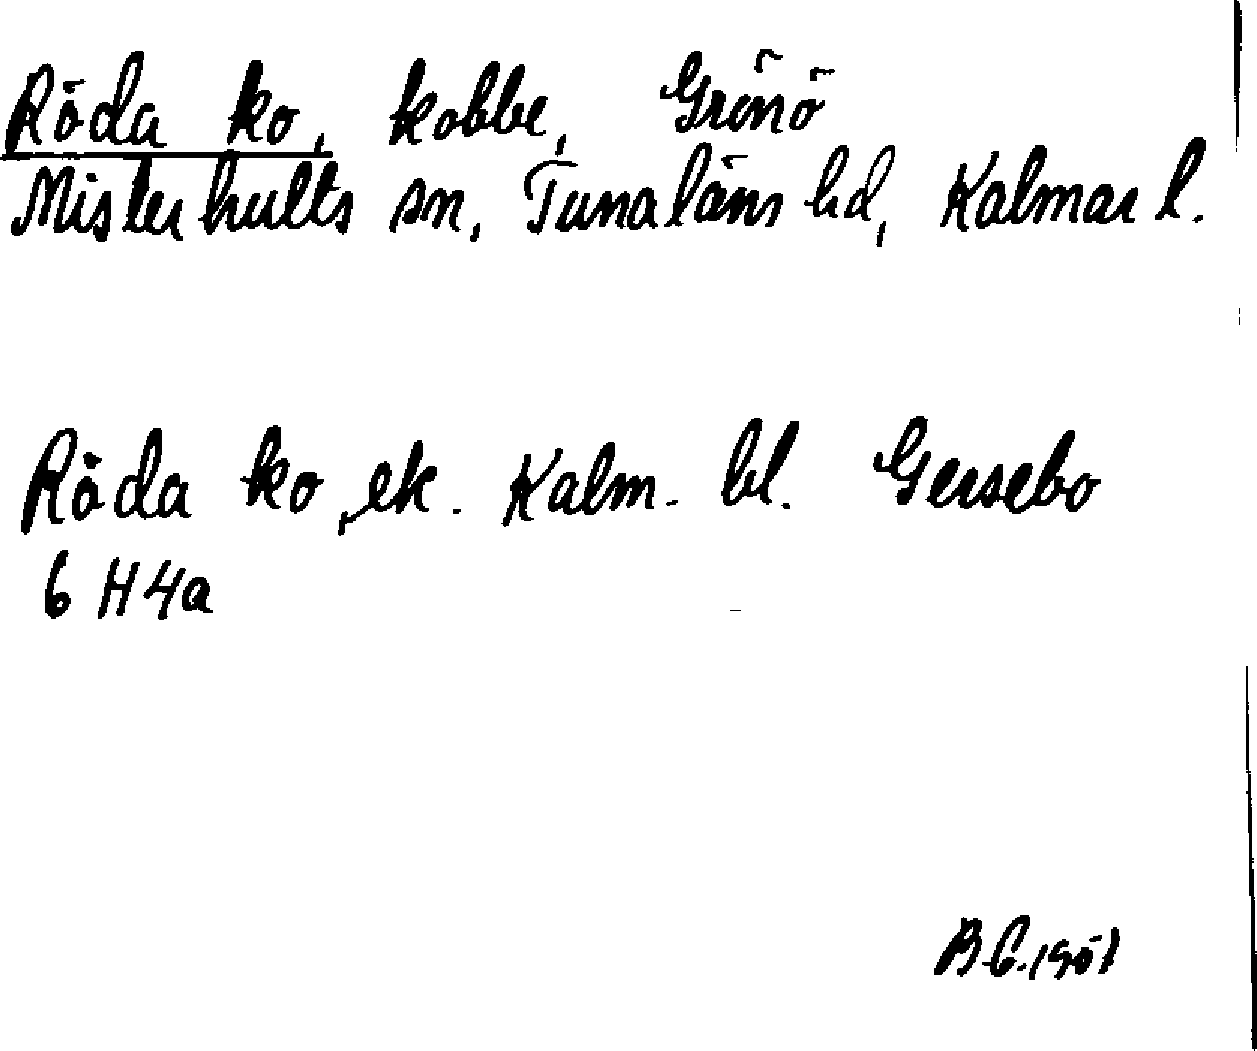 Röda ko, kobbe, Grönö
Misterhults sn, Tunaläns hd, Kalmar l.
Röda ko, ek. Kalm. bl. Gersebo
6 H4a